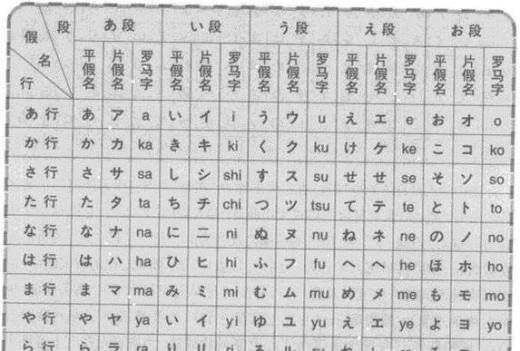 假名 段 行 あ段 い段 う段 え段 お段
平假名 片假名 罗马字 平假名 片假名 罗马字 平假名 片假名 罗马字 平假名 片假名 罗马字 平假名 片假名 罗马字
あ行 あ ア a い イ i う ウ u え エ e お オ o
か行 か カ ka き キ ki く ク ku け ケ ke こ コ ko
さ行 さ サ sa し シ shi す ス su せ せ se そ ソ so
た行 た タ ta ち チ chi つ ツ tsu て テ te と ト to
な行 な ナ na に ニ ni ぬ ヌ nu ね ネ ne の ノ no
は行 は ハ ha ひ ヒ hi ふ フ fu へ ヘ he ほ ホ ho
ま行 ま マ ma み ミ mi む ム mu め メ me も モ mo
や行 や ヤ ya い イ yi ゆ ユ yu え エ ye よ ヨ yo
ら行 ら ラ ra り リ ri